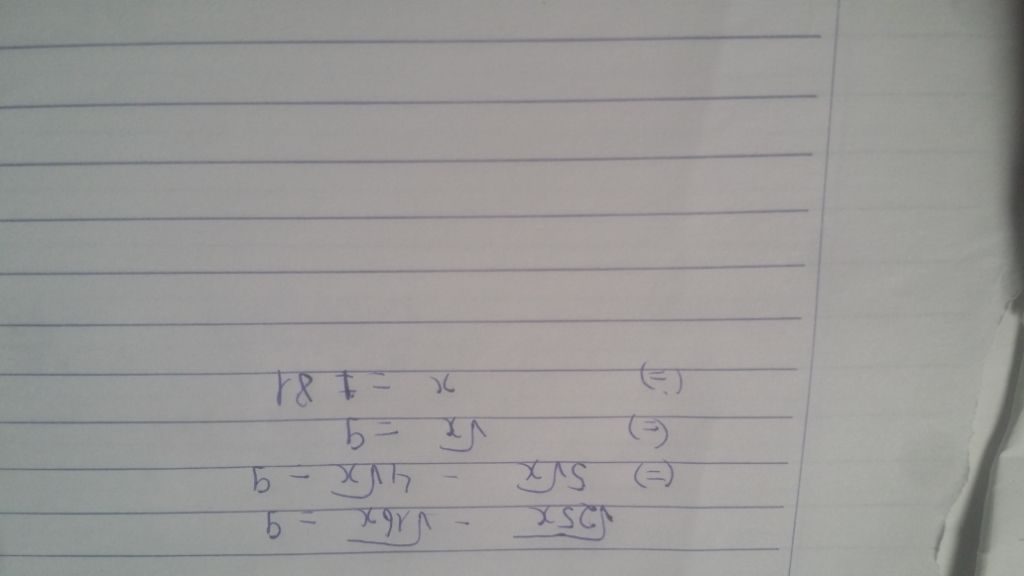 √25x - √16x = 9
(=) 5√x - 4√x = 9
(=) √x = 9
(=) x = 81